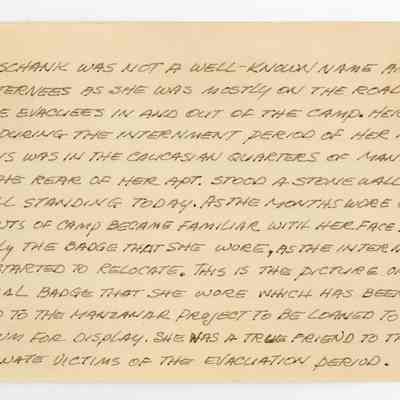 SCHANK WAS NOT A WELL-KNOWN NAME A
TERNEES AS SHE WAS MOSTLY ON THE ROAD
E EVACUEES IN AND OUT OF THE CAMP. HER
DURING THE INTERNMENT PERIOD OF HER
S WAS IN THE CAUCASIAN QUARTERS OF MAN
HE REAR OF HER APT. STOOD A STONE WALL
LL STANDING TODAY. AS THE MONTHS WORE
TS OF CAMP BECAME FAMILIAR WITH HER FACE
LY THE BADGE THAT SHE WORE, AS THE INTERN
STARTED TO RELOCATE. THIS IS THE PICTURE O
AL BADGE THAT SHE WORE WHICH HAS BEEN
D TO THE MANZANAR PROJECT TO BE LOANED TO
UM FOR DISPLAY. SHE WAS A TRUE FRIEND TO TH
NATE VICTIMS OF THE EVACUATION PERIOD.